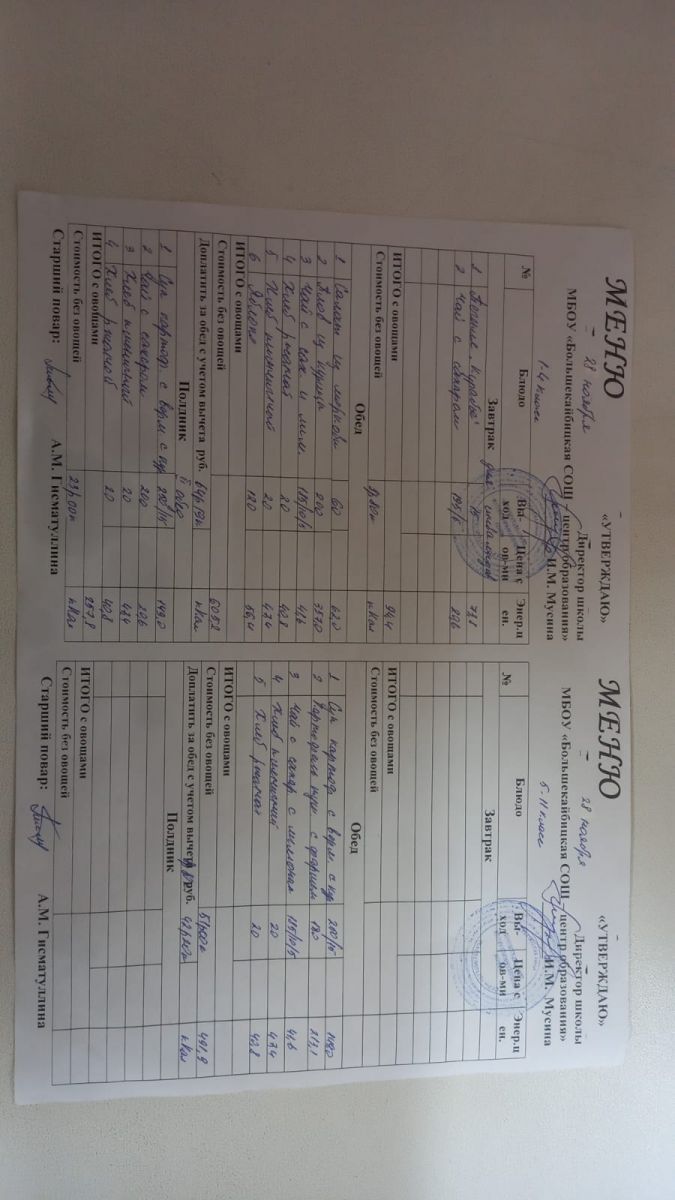 «УТВЕРЖДАЮ»
Директор школы
И.М. Мусина
МЕНЮ
28 ноября
МБОУ «Большекайбицкая СОШ – центр образования»
1-4 класс
№ Блюдо Вы-ход Цена с ов-ми Энер.ц ен.
Завтрак для инвалидов
1 Печенье 77,1
2 Чай с сахаром 195/5 22,6
ИТОГО с овощами 94,4
Стоимость без овощей кКал
Обед
1 Салат из моркови 60 62,0
2 Плов из курицы 200 357,0
3 Чай с сах и лим. 195/10/5 41,6
4 Хлеб ржаной 20 40,8
5 Хлеб пшеничный 20 47,4
6 Яблоко 120 56,4
ИТОГО с овощами 605,2
Стоимость без овощей 64р 19к кКал
Доплатить за обед с учетом вычета руб.
Полдник II обед
1 Суп картоф. с верм. с кур 200/15 149,0
2 Чай с сахаром 200 22,6
3 Хлеб пшеничный 20 47,4
4 Хлеб ржаной 20 40,8
ИТОГО с овощами 257,8
Стоимость без овощей 23р 00к кКал
Старший повар: А.М. Гисматуллина
«УТВЕРЖДАЮ»
Директор школы
И.М. Мусина
МЕНЮ
28 ноября
МБОУ «Большекайбицкая СОШ – центр образования»
5-11 класс
№ Блюдо Вы-ход Цена с ов-ми Энер.ц ен.
Завтрак
ИТОГО с овощами
Стоимость без овощей
Обед
1 Суп картоф. с верм. с кур 200/15 149,0
2 Картофель туш с фаршем 180 213,1
3 Чай с сахар с лимоном 195/10/5 41,6
4 Хлеб пшеничный 20 47,4
5 Хлеб ржаной 20 40,8
ИТОГО с овощами 491,9
Стоимость без овощей 51р00к кКал
Доплатить за обед с учетом вычета руб.
Полдник
ИТОГО с овощами
Стоимость без овощей
Старший повар: А.М. Гисматуллина